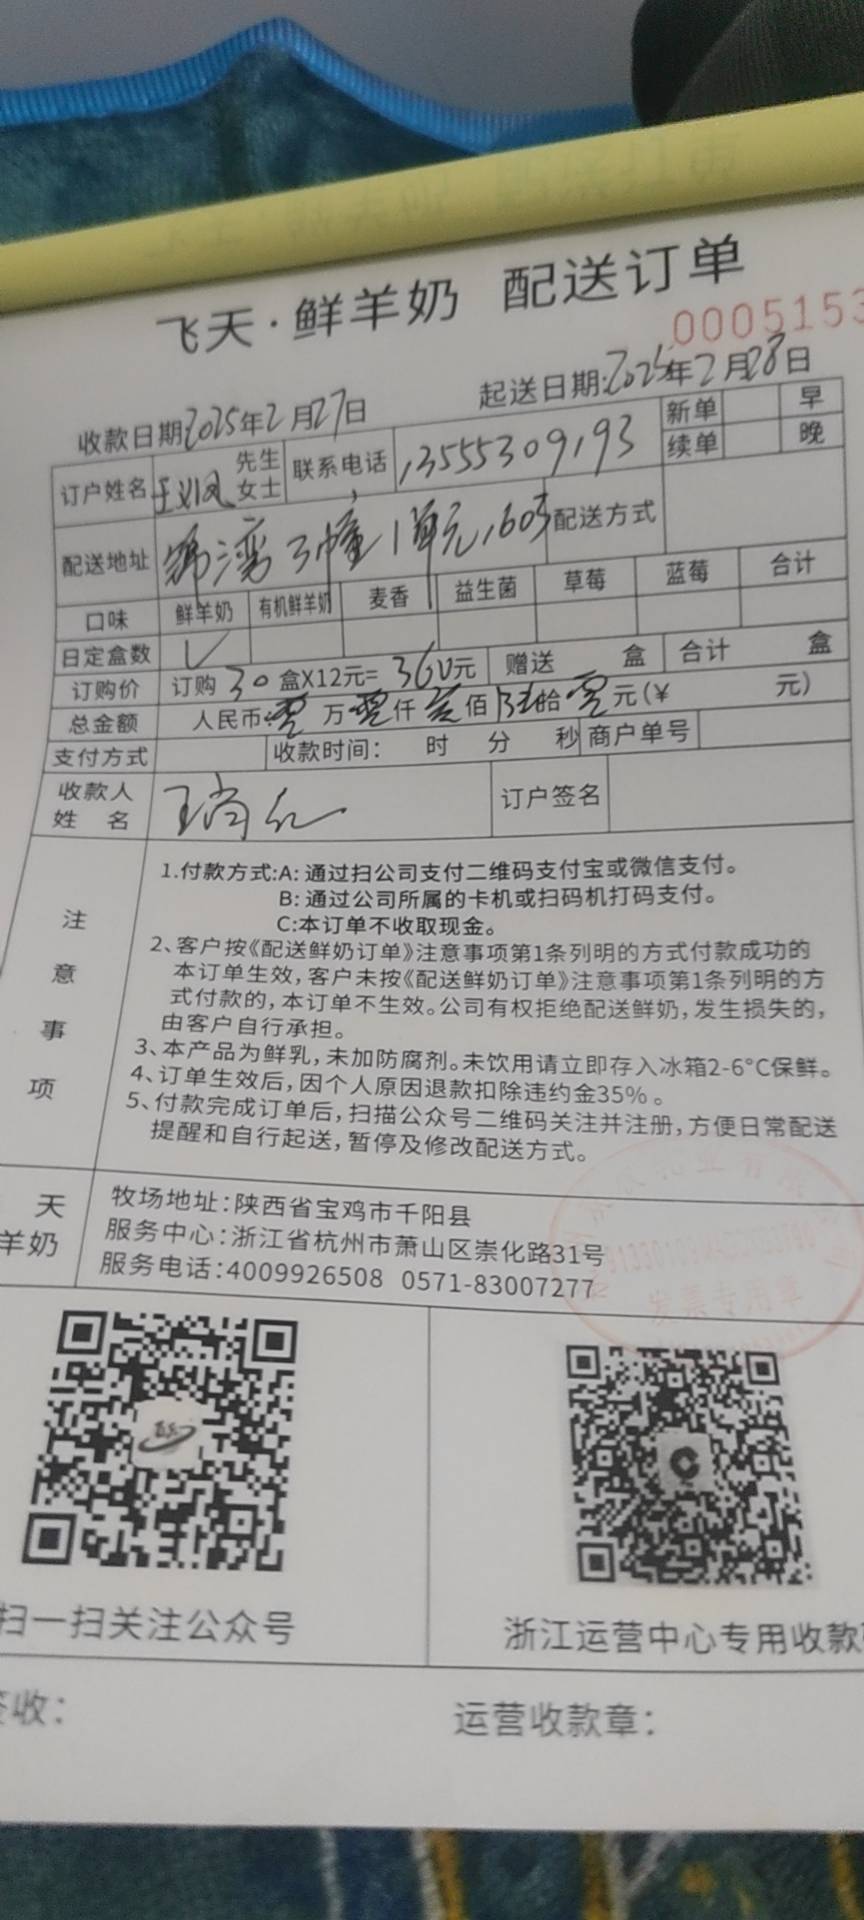 飞天·鲜羊奶 配送订单
0005153
收款日期2025年2月27日 起送日期:2025年2月28日
订户姓名 先生 女士 联系电话 13555309193 新单 早
续单 晚
配送地址 湾3幢1单元1603 配送方式
口味 鲜羊奶 有机鲜羊奶 麦香 益生菌 草莓 蓝莓 合计
日定盒数 ✓
订购价 订购30盒X12元=360元 赠送 盒 合计 盒
总金额 人民币:零万零仟叁佰陆拾零元(¥ 元)
支付方式 收款时间: 时 分 秒 商户单号
收款人姓名 订户签名
注意事项
1.付款方式:A:通过扫公司支付二维码支付宝或微信支付。
B:通过公司所属的卡机或扫码机打码支付。
C:本订单不收取现金。
2、客户按《配送鲜奶订单》注意事项第1条列明的方式付款成功的
本订单生效,客户未按《配送鲜奶订单》注意事项第1条列明的方
式付款的,本订单不生效。公司有权拒绝配送鲜奶,发生损失的,
由客户自行承担。
3、本产品为鲜乳,未加防腐剂。未饮用请立即存入冰箱2-6°C保鲜。
4、订单生效后,因个人原因退款扣除违约金35%。
5、付款完成订单后,扫描公众号二维码关注并注册,方便日常配送
提醒和自行起送,暂停及修改配送方式。
天
羊奶
牧场地址:陕西省宝鸡市千阳县
服务中心:浙江省杭州市萧山区崇化路31号
服务电话:4009926508 0571-83007277
发票专用章
扫一扫关注公众号
浙江运营中心专用收款
签收:
运营收款章: